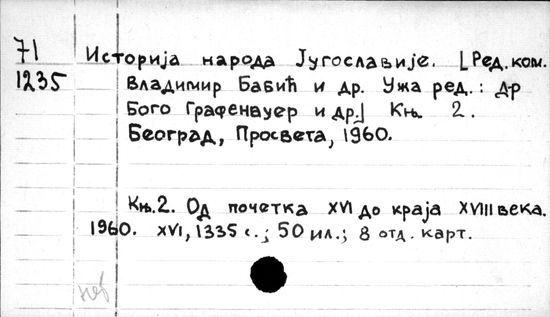 71
1235
Историја народа Југославије. [Ред. ком.
Владимир Бабић и др. Ужа ред.: др
Бого Графенауер и др.] Књ. 2.
Београд, Просвета, 1960.
Књ. 2. Од почетка XVI до краја XVIII века.
1960. XVI, 1335 с.; 50 ил.; 8 отд. карт.